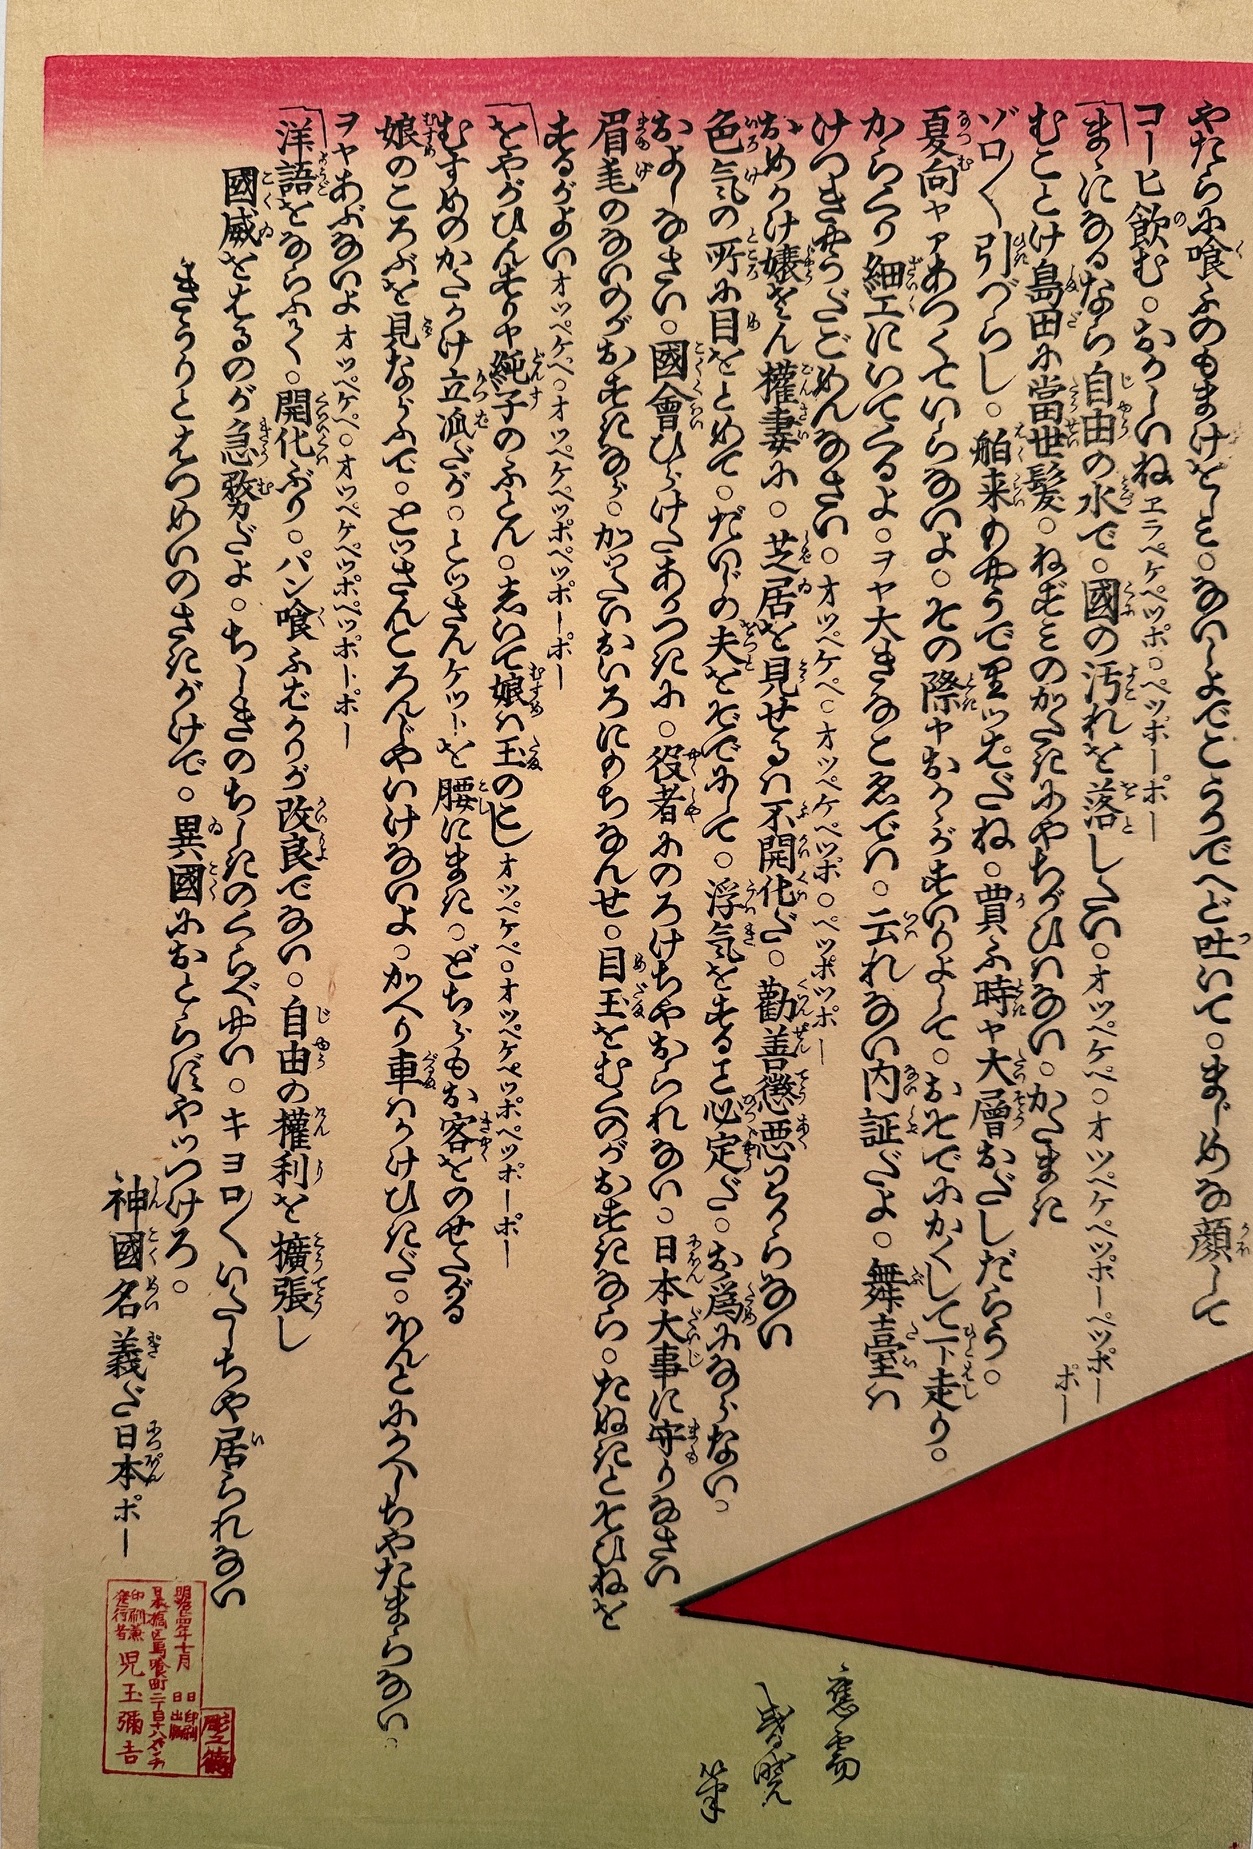 やたらに喰ふのもまけをしミ。ないしよでこうかでへど吐いて。まじめな顔して
コーヒ飲む。おかしいねヱラペケペツポ。ペツポーポー
まゝになるなら自由の水で。國の汚れを落したい。オツペケペ。オツペケペツポーペツポー
ポー
むことけ島田に當世髪。ねずミのかたきにやちがひハない。かたまき
ゾロ〳〵引づらし。舶来もやうで
だね。買ふ時ャ大層おだしだらう。
夏向ャァあつくていらないよ。その際ャおかがすいりよして。おそでにかくして下走り。
からくり細工にいてくるよ。ヲヤ大きなこゑでハ。云れない内証だよ。舞臺ハ
けつきやうだごめんなさい。オツペケペ。オツペケペツポ。ペツポツポー
おめかけ嬢さん權妻に。芝居を見せるハ不開化だ。勸善懲悪わからない
色気の所に目をとめて。だいじの夫をそでにして。浮気をする𪜈必定だ。お爲にならない。
およしなさい。國會ひらけたあかつきに。役者にのろけちやおられない。日本大事に守りなさい
眉毛のないのがおすきなら。かつたいおいろにもちなんせ。目玉をむくのがおすきなら。たぬきとそひねを
するがよいオツペケペ。オツペケペツポペツポーポー
をやがひんすりャ緞子のふとん。しいて娘ハ玉のこしオツペケペ。オツペケペツポペツポーポー
むすめのかたかけ立派だが。とツさんケツトを腰にまき。どちらもお客をのせたがる
娘のころぶを見ならふて。とツさんころんじやいけないよ。かへり車ハかけひきだ。ほんとにかへしちやたまらない。
ヲヤあぶないよオツペケペ。オツペケペツポペツポーポー
洋語をならふて。開化ぶり。パン喰ふばかりが改良でない。自由の權利を擴張し
國威をはるのが急務だよ。ちしきのちしきのくらべやい。キヨロ〳〵いたしちや居られない
きうりとはつめいのさきがけで。異國におとらずやツつけろ。
神國名義だ日本ポー
應需
筆
明治廿四年
日 印刷
日 出版
日本橋区馬喰町二丁目
印刷兼
発行者
児玉彌吉